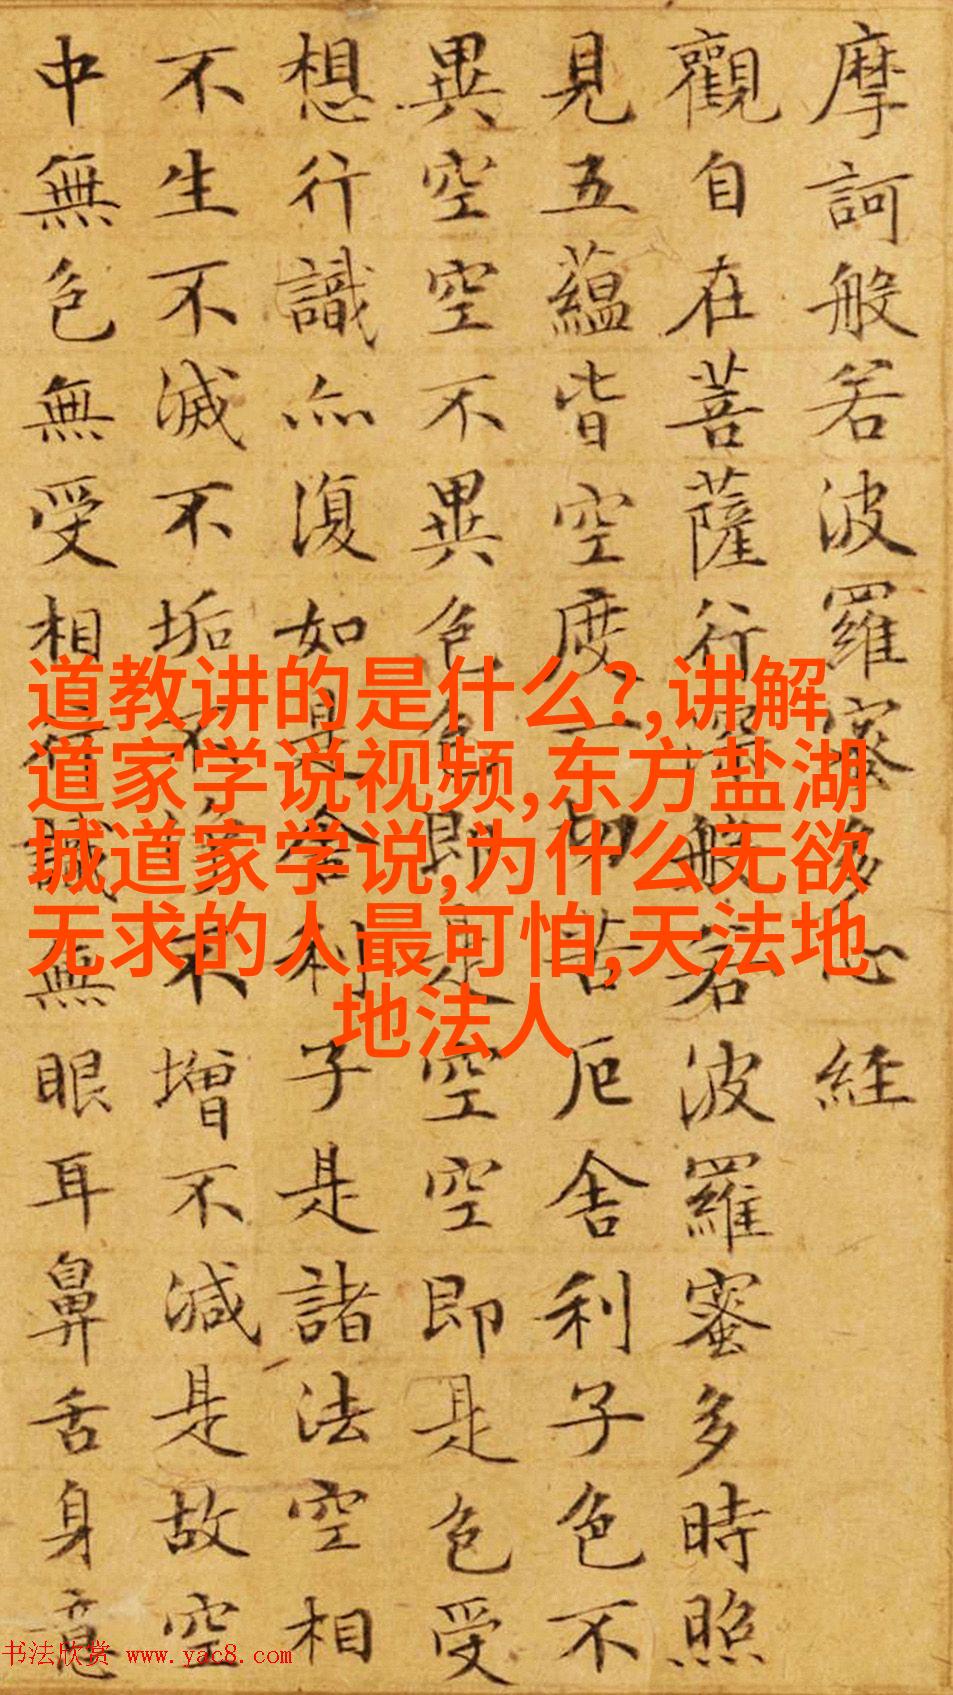 摩訶般若波羅蜜多心経
觀自在菩薩行深般若波羅蜜多時照
見五蘊皆空度一切苦厄舍利子色不
異空空不異色色即是空空即是色受
想行識亦復如是舍利子是諸法空相
不生不滅不垢不不增不減是故空
中無色無受相行識無眼耳鼻舌身意
道教讲的是什么?,讲解
道家学说视频,东方盐湖
城道家学说,为什么无欲
无求的人最可怕,天法地
地法人
书法欣赏 www.yac8.com